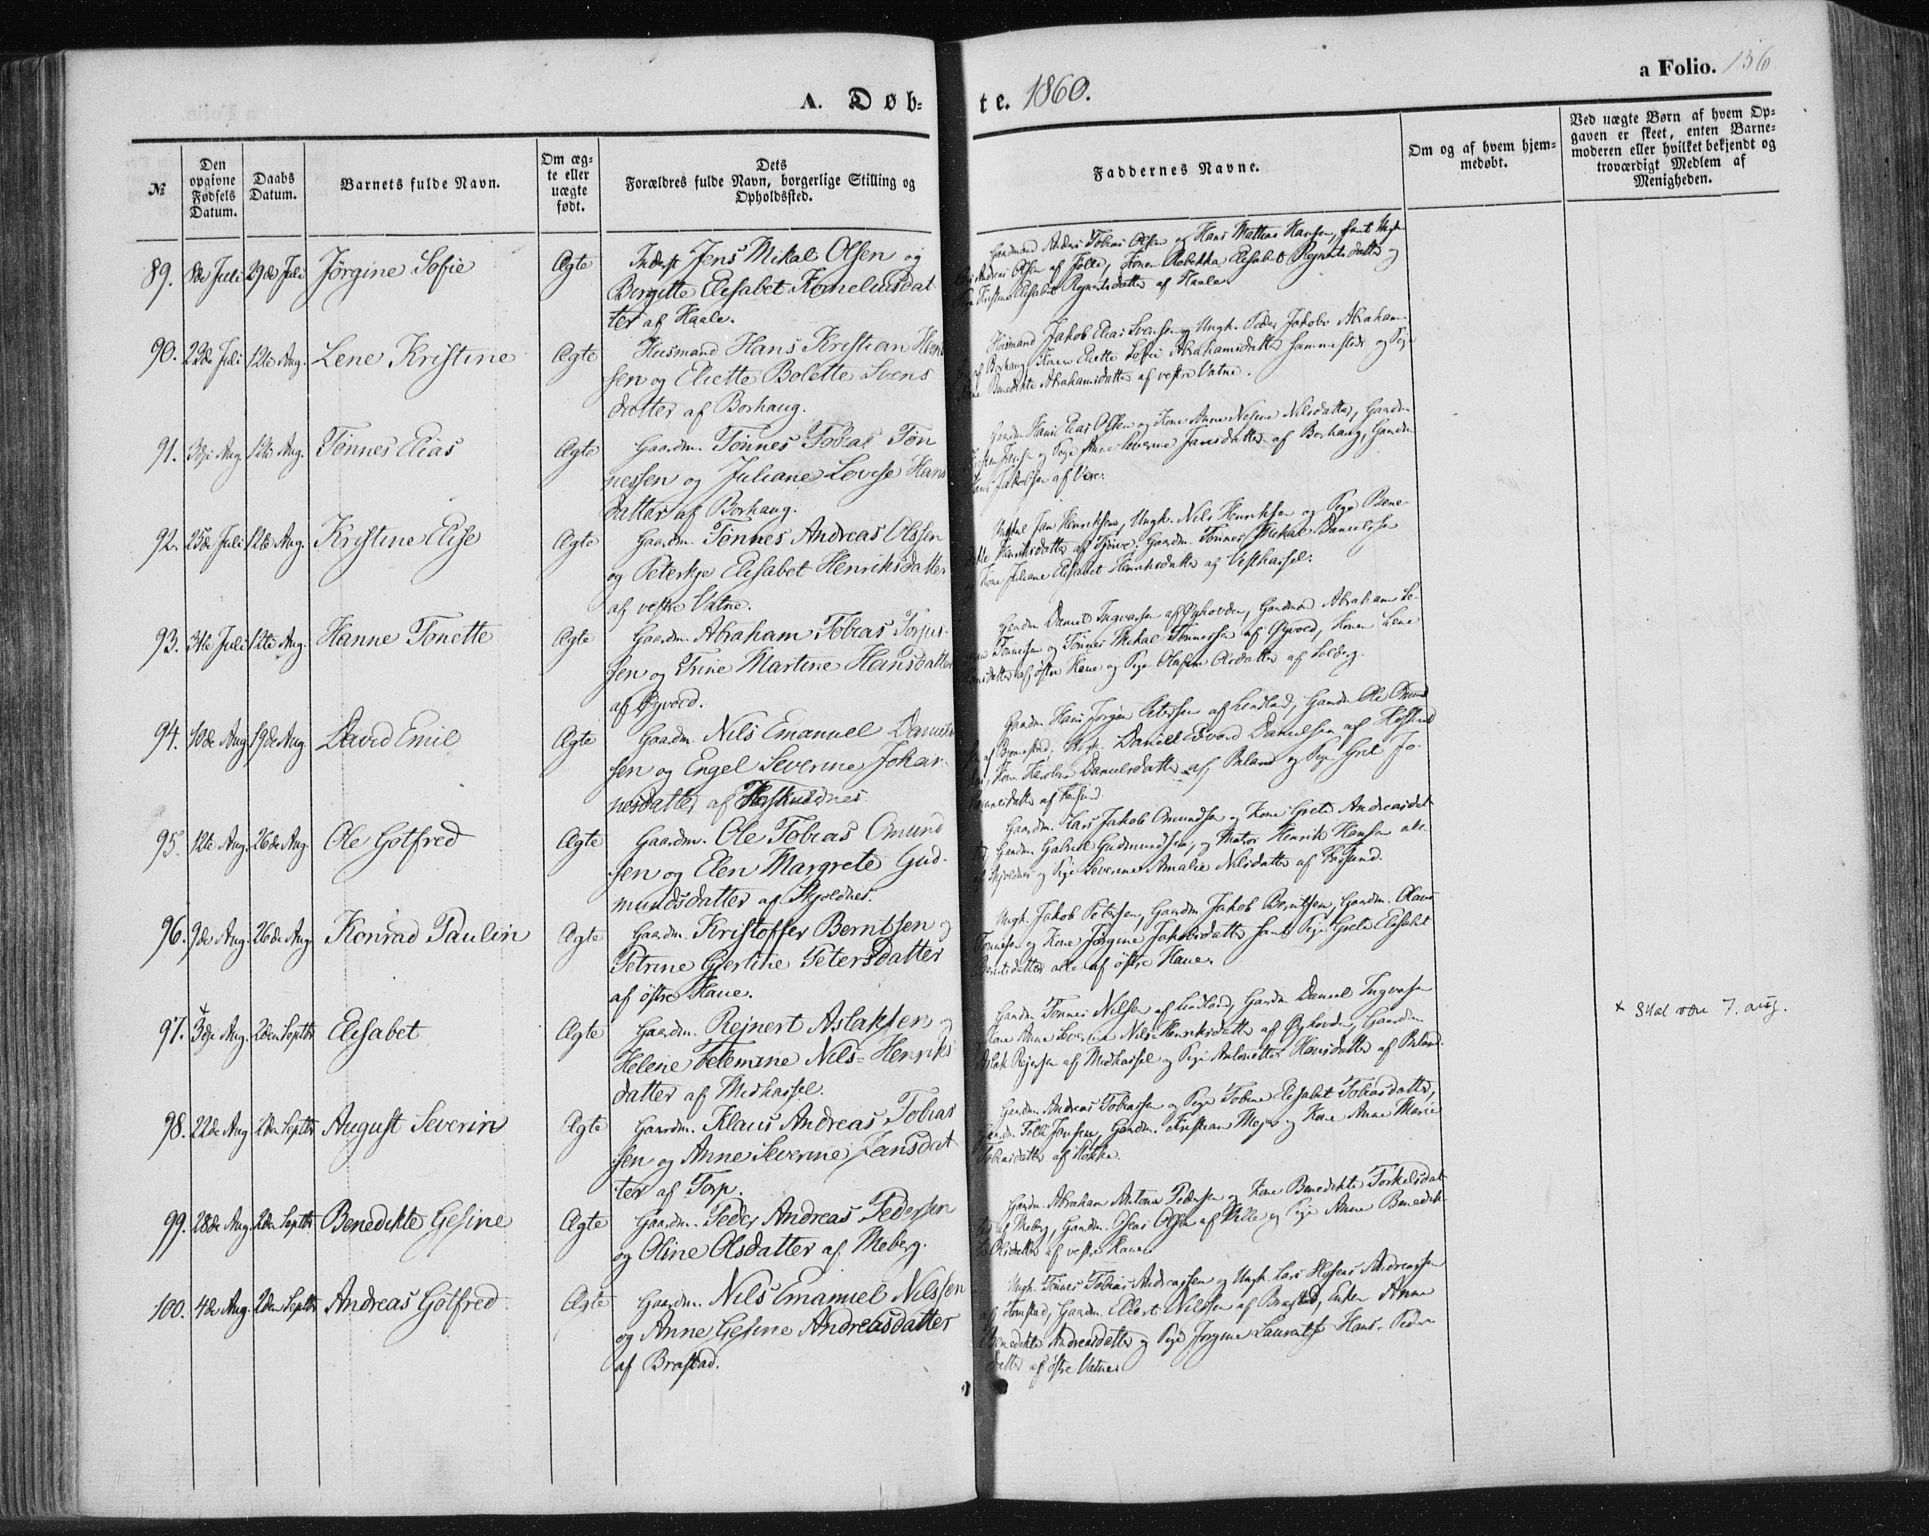 A. Døb-
te. 1860.
a Folio. 156
№
Den opgivne Fødsels Datum.
Daabs Datum.
Barnets fulde Navn.
Om ægte eller uægte født.
Dets Forældres fulde Navn, borgerlige Stilling og Opholdssted.
Faddernes Navne.
Om og af hvem hjemmedøbt.
Ved uægte Børn af hvem Opgaven er skeet, enten Barnemoderen eller hvilket bekjendt og troværdigt Medlem af Menigheden.
89. 8de Juli 29de Juli Jörgine Sofie Ægte Inderst Jens Mikal Olsen og
Borgitte Elisabet Korneliusdat
ter af Haale.
Gaardmand Andreas Tobias Olsen og Hans Mathias Hansen, samt Ungk.
Andreas Olsen af Jølle, Konen Rebekka Elisabet Regnertsdatter og
Kristine Elisabet Regnertsdatter af Haale
90. 22de Juli 12te Aug. Lene Kristine Ægte Husmand Hans Kristian
sen og Eliette Bolette Svens
datter af Borhaug.
Husmand Jakob Elias Svensen og Ungk. Peder Jakob Abraham
af Borhaug, Konen Eliette Sofie Abrahamsdatter sammesteds og Pige
Benedikte Abrahamsdatter af vestre Vatne.
91. 3die Aug. 12te Aug. Tönnes Elias Ægte Gaardm. Tönnes Tobias Tön
nessen og Juliane Lovise Hans
datter af Borhaug.
Gaardm. Hans Elias Olsen og Kone Anne Nilsdatter, Gaardm
og Pige Anne Severine Jansdatter af Borhaug, Gaardm
Jakobsen af Vere.
92. 25de Juli 12te Aug. Kristine Elise Ægte Gaardm. Tönnes Andreas Olsen
og Peterkje Elisabet Henriksdatter
af vestre Vatne.
Jan Henriksen, Ungk. Nils Henriksen og Pige Bene
Henriksdatter af Tjöive. Gaardm. Tönnes Mikal Danielsen
Kone Juliane Elisabet Henriksdatter af Vesthassel.
93. 31te Juli 12te Aug. Hanne Tonette Ægte Gaardm. Abraham Tobias Torjus-
sen og Trine Martine Hansdatter
af Øyvord.
Gaardm Daniel Ingvarsen af Øyhovden, Gaardmand Abraham
Tönnesen og Tönnes Mikal Tönnessen af Øyvord, Konen Lene
af östre Haue og Pige Olsdatter af Solberg.
94. 10de Aug 19de Aug. David Emil Ægte Gaardm Nils Emanuel Daniel
sen og Engel Severine Johan-
nesdatter af Hoskuldnes.
Gaardm Hans Jörgen Petersen af Lindland, Gaardm Ole Omund
Ungk. Daniel Edvard Danielsen af
Kone Danielsdatter af Briland og Pige Gret Jo-
hannesdatter af Farsund.
95. 12te Aug. 26de Aug. Ole Gotfred Ægte Gaardm. Ole Tobias Omund
sen og Elen Margrete Gud-
mundsdatter af Skjoldnes.
Gaardm. Lars Jakob Omundsen og Kone Grete Andreasdat
Gaardm Gabriel Gudmundsen, og Matros Henrik Hansen alle
af Skjoldnes og Pige Severine Amalie Nilsdatter af Farsund.
96. 9de Aug 26de Aug Konrad Paulin Ægte Gaardm. Kristoffer Berntsen og
Petrine Gjertine Petersdatter
af östre Haue.
Ungk. Jakob Petersen, Gaardm Jakob Berntsen, Gaardm. Olaus
Tönnesen og Kone Jörgine Jakobsdatter samt Pige Grete Elisabet
Berntsdatter alle af östre Haue.
97. 3die Aug. 2den Septbr Elisabet Ægte Gaardm. Rejnert Aslaksen og
Helene Telemine Nils-Henriks
datter af Midhassel.
Gaardm Tönnes Nilsen af Lindland, Gaardm Daniel Ingvarsen
Kone Anne Severine Nils Henriksdatter af Øyhovden, Gaardm
Aslak Rejersen af Midhassel og Pige Antonette Hansdatter af Briland.
x Skal være 7. aug.
98. 22de Aug 2den Septbr August Severin Ægte Gaardm. Klaus Andreas Tobias
sen og Anne Severine Jansdat
ter af Torp.
Gaardm Andreas Tobiassen og Pige Tobine Elisabet Tobiasdatter,
Jansen, Gaardm. Kristian Mejer og Kone Anne Marie
Tobiasdatter af
99. 28de Aug 2den Septbr Benedikte Gesine Ægte Gaardm. Peder Andreas Pedersen
og Oline Olsdatter af Meberg.
Gaardm Abraham Antoni Pedersen og Kone Benedikte Torkelsdat
ter af Meberg, Gaardm. Olsen af og Pige Anne Benedik
te Olsdatter af vestre Haue.
100. 4de Aug. 2den Septbr Andreas Gotfred Ægte Gaardm. Nils Emanuel Nilssen
og Anne Gesine Andreasdatter
af Brastad.
Ungk. Tönnes Tobias Andreassen og Ungk. Lars Andreassen
Gaardm. Ellert Nilssen af Brastad, Enken Anne
Benedikte Andreasdatter og Pige Jörgine Lauentse Hans Peder
datter af östre Vatne.